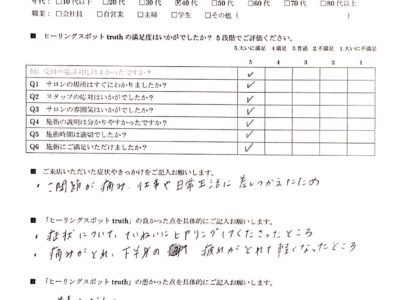 年代：□10代以下 □20代 □30代 ☑40代 □50代 □60代 □70代 □80代以上
職業：□会社員 □自営業 □主婦 □学生 □その他（ ）
■ ヒーリングスポット truth の満足度はいかがでしたか？ 5段階でご評価ください。
5.大いに満足 4.満足 3.普通 2.不満足 1.大いに不満足
5 4 3 2 1
例) 受付の電話対応はよかったですか？ ✓
Q1 サロンの場所はすぐにわかりましたか？ ✓
Q2 スタッフの応対はいかがでしたか？ ✓
Q3 サロンの雰囲気はいかがでしたか？ ✓
Q4 施術の説明は分かりやすかったですか？ ✓
Q5 施術時間は適切でしたか？ ✓
Q6 施術にご満足いただけましたか？ ✓
■ ご来店いただいた症状やきっかけをご記入お願いします。
・コ関節が痛み、仕事や日常生活に差しつかえたため
■ 「ヒーリングスポット truth」の良かった点を具体的にご記入お願いします。
・症状について、ていねいにヒアリングしてくださったところ
・痛みがとれ、下半身の 疲れがとれて軽くなったところ
■ 「ヒーリングスポット truth」の悪かった点を具体的にご記入お願いします。